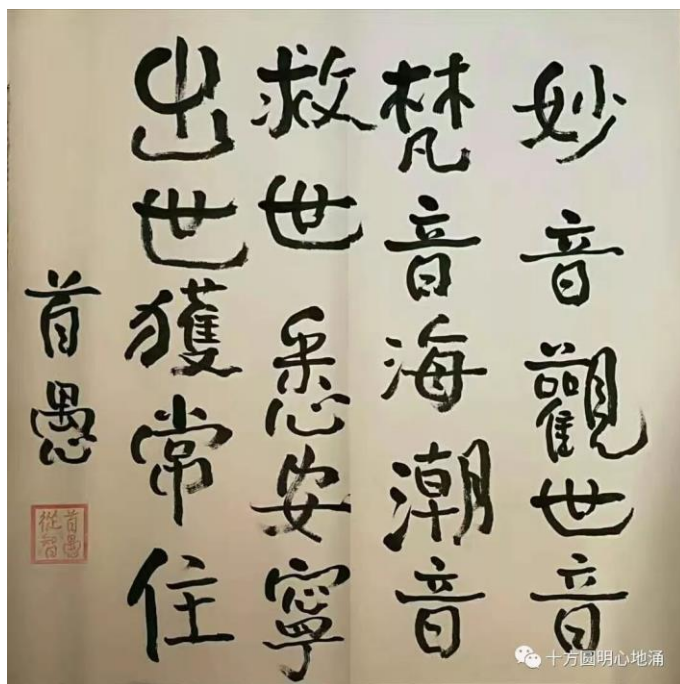 妙音觀世音
梵音海潮音
救世悉安寧
出世獲常住
首愚
首愚
從智
十方圆明心地涌